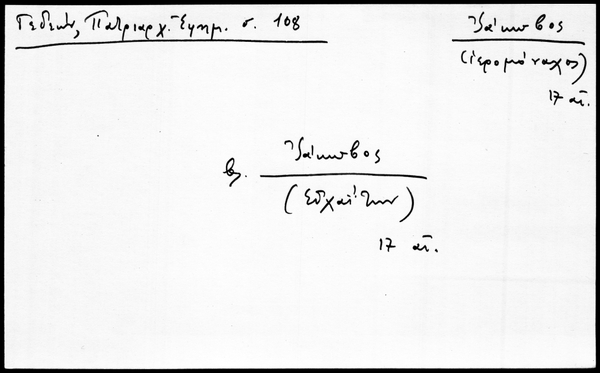 Γεδεών, Πατριαρχ. Εφημ. σ. 108
Ἰάκωβος
(ἱερομόναχος)
17 αἰ.
βλ. Ἰάκωβος
(Εὐχαΐτων)
17 αἰ.